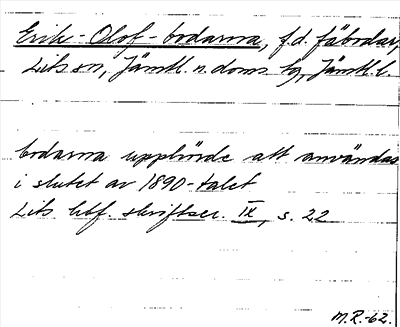 Erik-Olof-bodarna, f.d. fäbodar,
Lits sn, Jämtl. n. doms. tg, Jämtl. l.
bodarna upphörde att användas
i slutet av 1890-talet
Lits hbf. skriftser. IX, s. 22
M.R.-62.